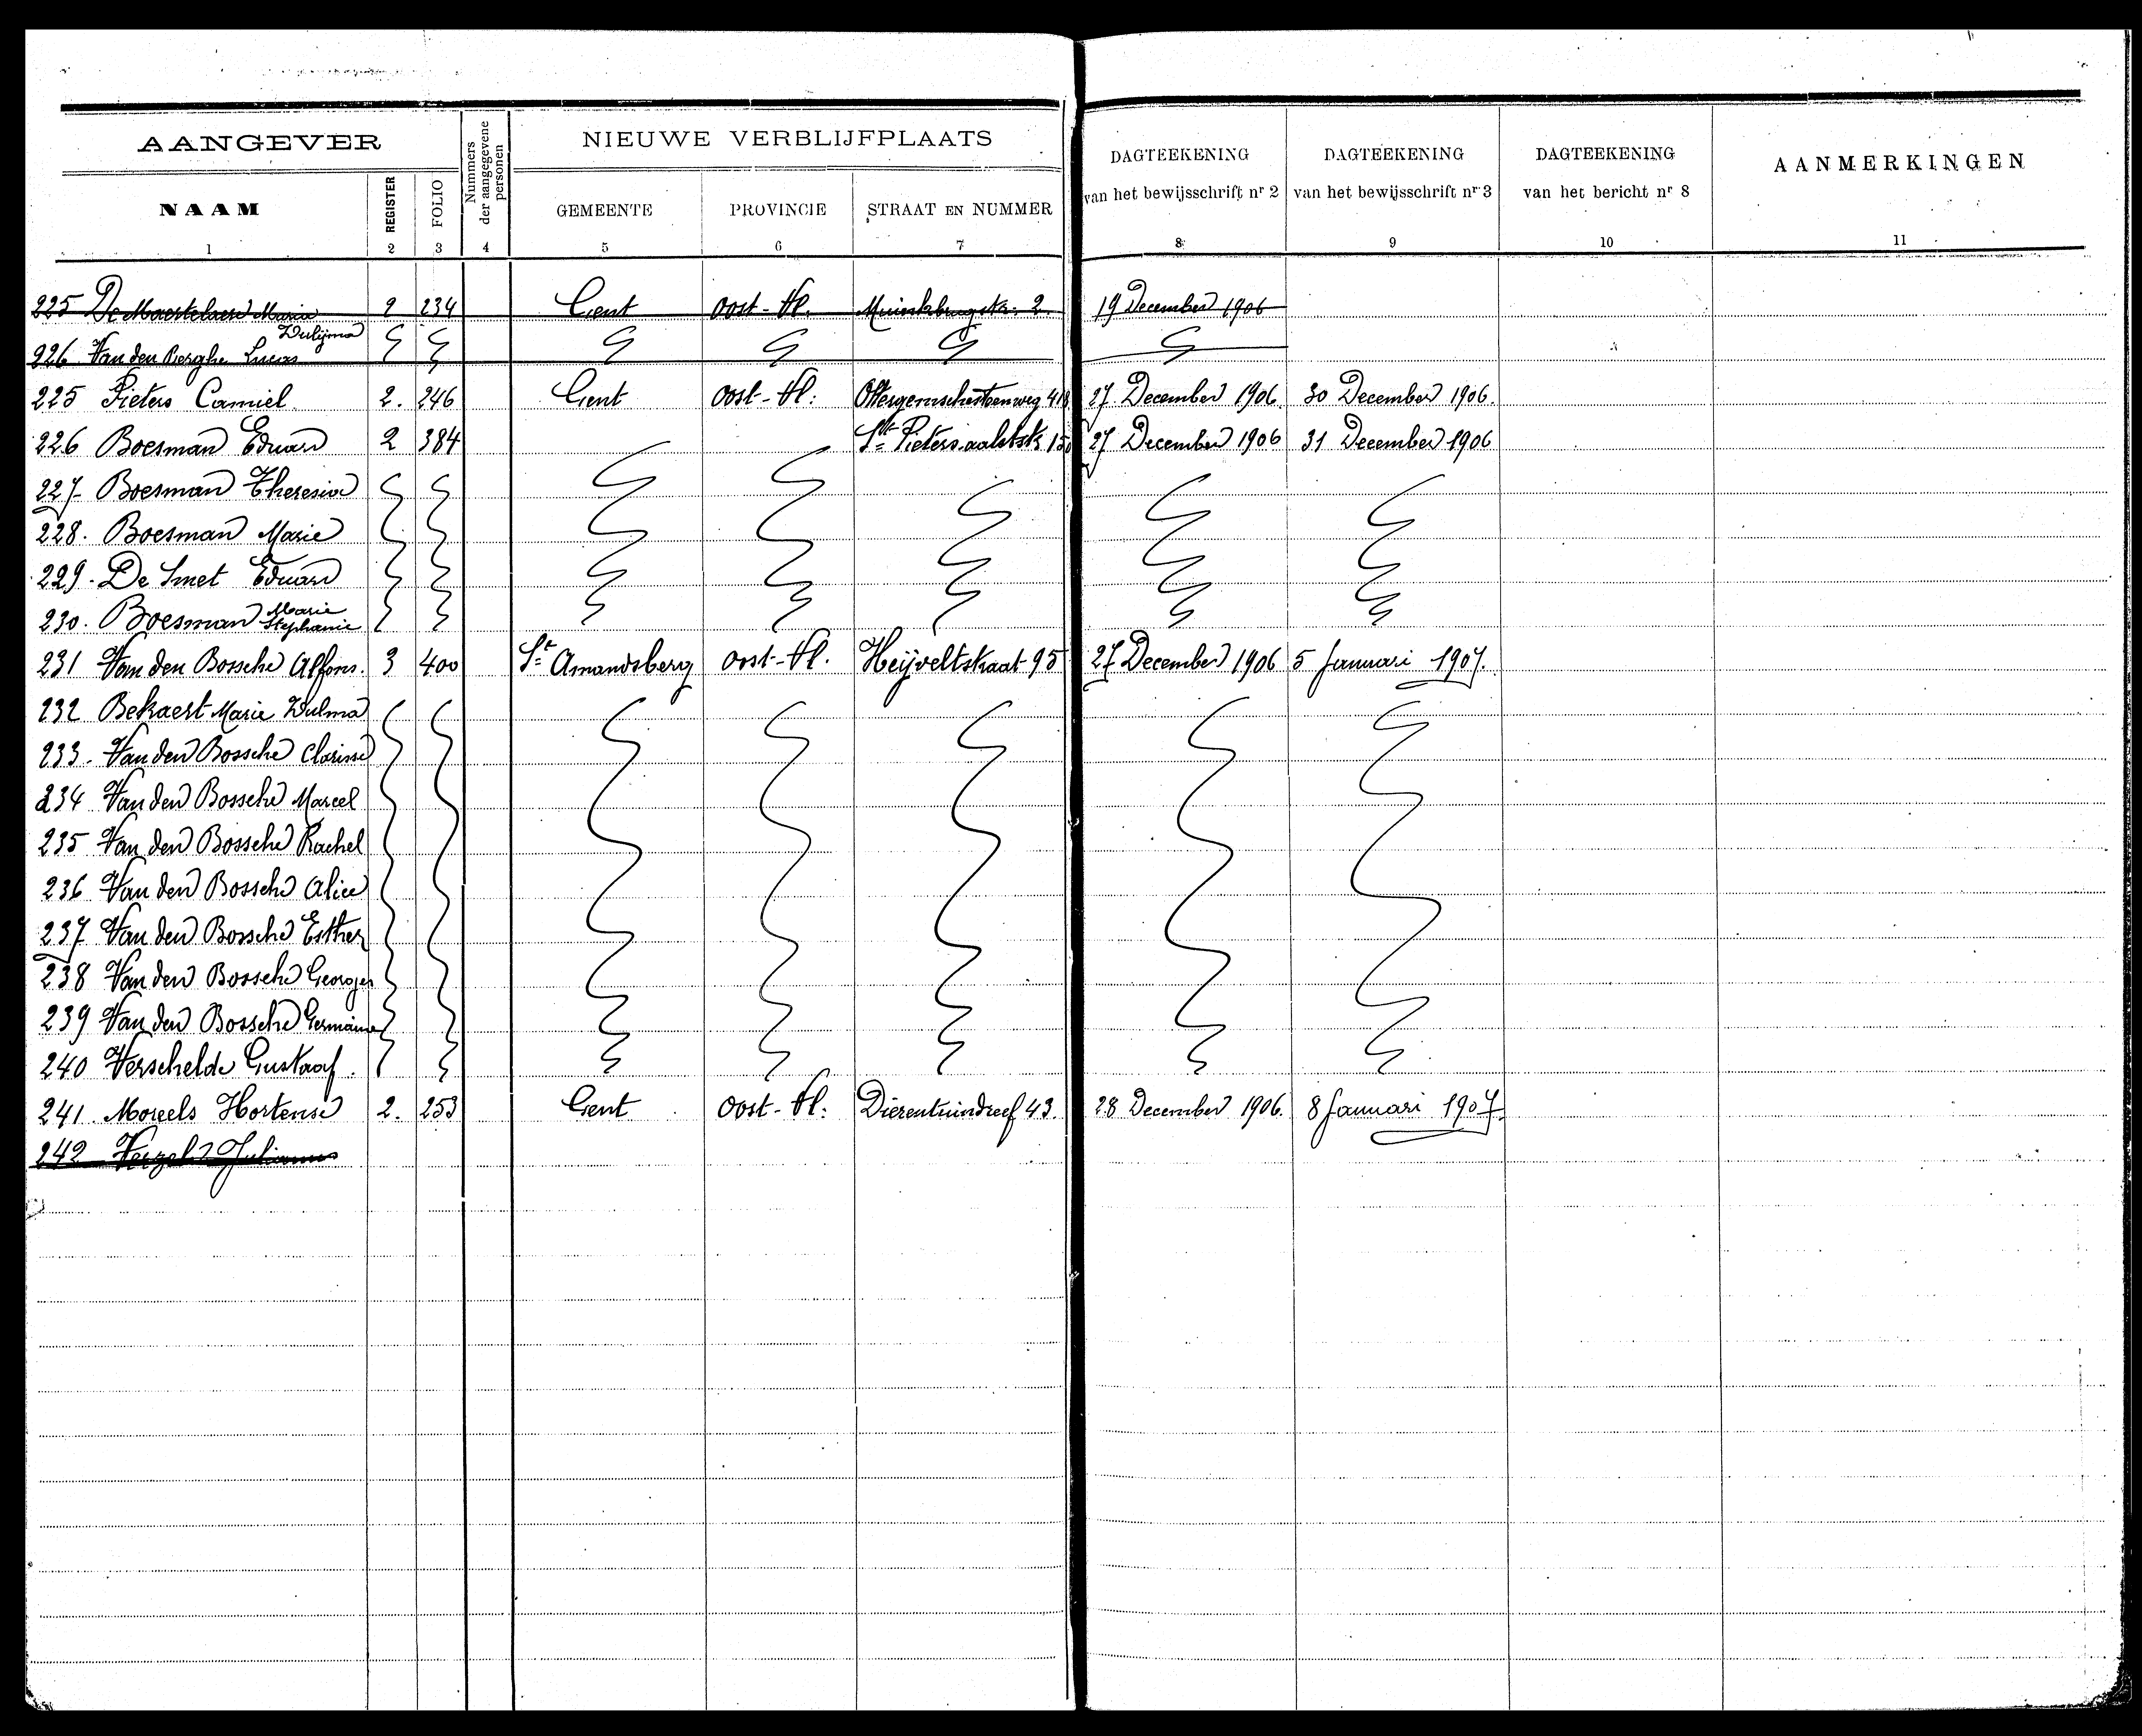 AANGEVER
NIEUWE VERBLIJFPLAATS
Nummers der aangegevene personen
DAGTEEKENING van het bewijsschrift nr 2
DAGTEEKENING van het bewijsschrift nr 3
DAGTEEKENING van het bericht nr 8
AANMERKINGEN
NAAM REGISTER FOLIO GEMEENTE PROVINCIE STRAAT EN NUMMER
1 2 3 4 5 6 7 8 9 10 11
225 Maria 2 234 Gent Oost-Vl. 2 19 December 1906
226 Van den Berghe Lucas
225 Pieters Camiel 2. 246 Gent Oost-Vl: 27 December 1906 30 December 1906.
226 Boesman Eduard 2 384 St Pieters aalststr 27 December 1906 31 December 1906
227 Boesman Theresia
228. Boesman Marie
229. De Smet Eduard
230. Boesman Marie Stephanie
231 Van den Bossche Alfons. 3 400 St Amandsberg Oost-Vl. Heijveltstraat 95 27 December 1906 5 Januari 1907.
232 Bekaert Marie Zulma
233. Van den Bossche Clarisse
234 Van den Bossche Marcel
235 Van den Bossche Rachel
236 Van den Bossche Alice
237 Van den Bossche Esther
238 Van den Bossche Georges
239 Van den Bossche Germaine
240 Verschelde Gustaaf.
241. Moreels Hortense 2. 253 Gent Oost-Vl: Dierentuindreef 43. 28 December 1906. 8 Januari 1907.
242